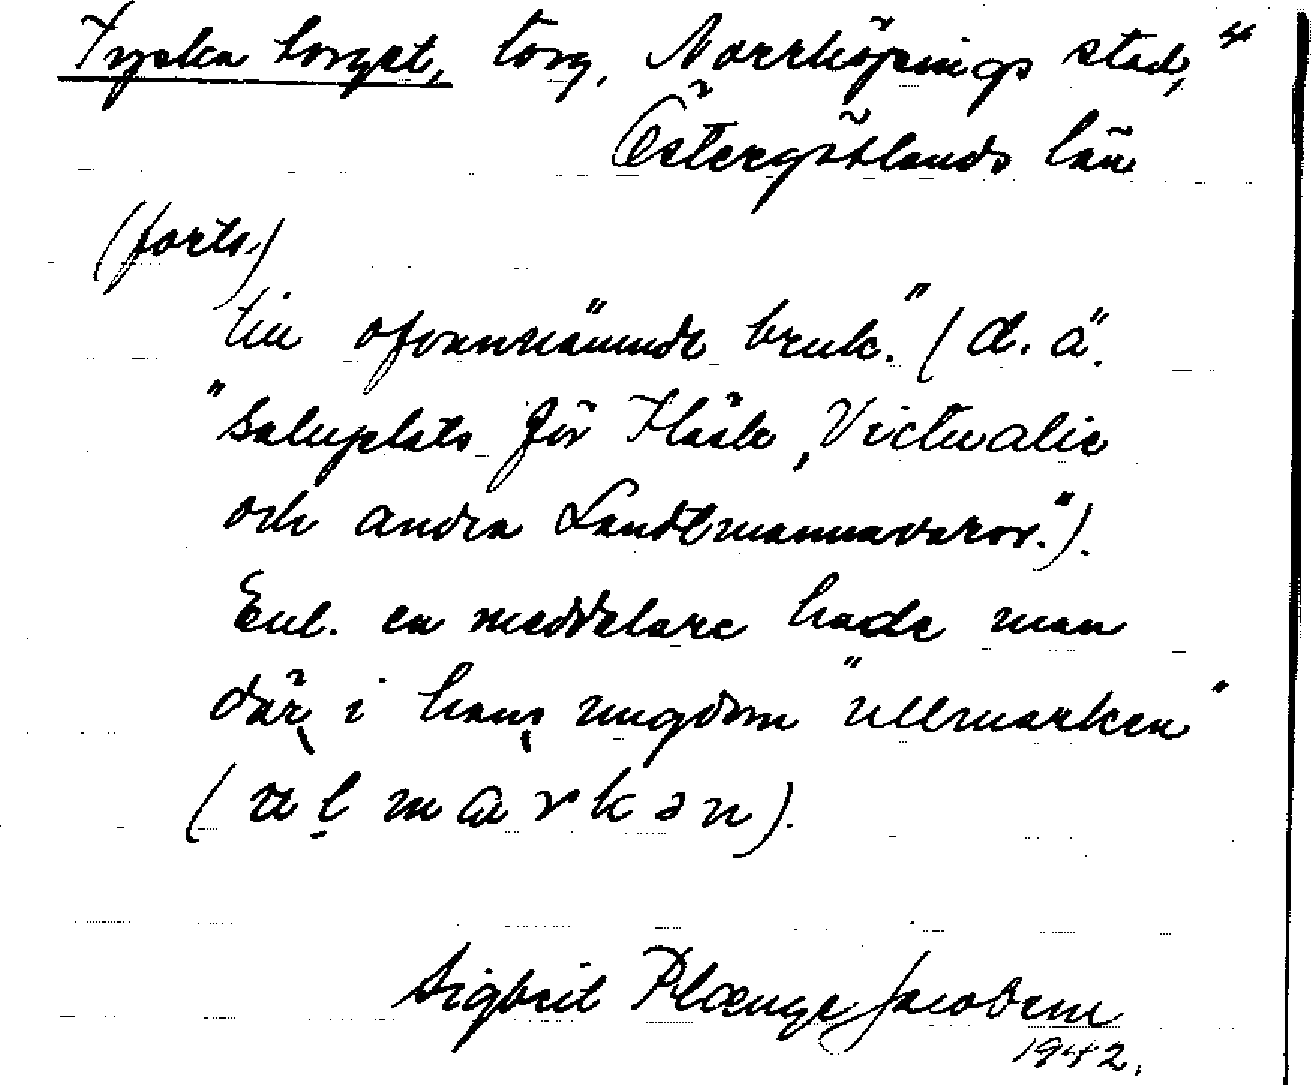 Tyska torget, torg, Norrköpings stad, 4
Östergötlands län
(forts.)
till ofvannämnde bruk." (d. ä.
"Saluplats för Fläsk, Victualie
och andra Landtmannavaror.").
Enl. en meddelare hade man
där i hans ungdom "ullmarken"
(u l m a r k ə n).
Sigbrit Plænge Jacobson
1942.